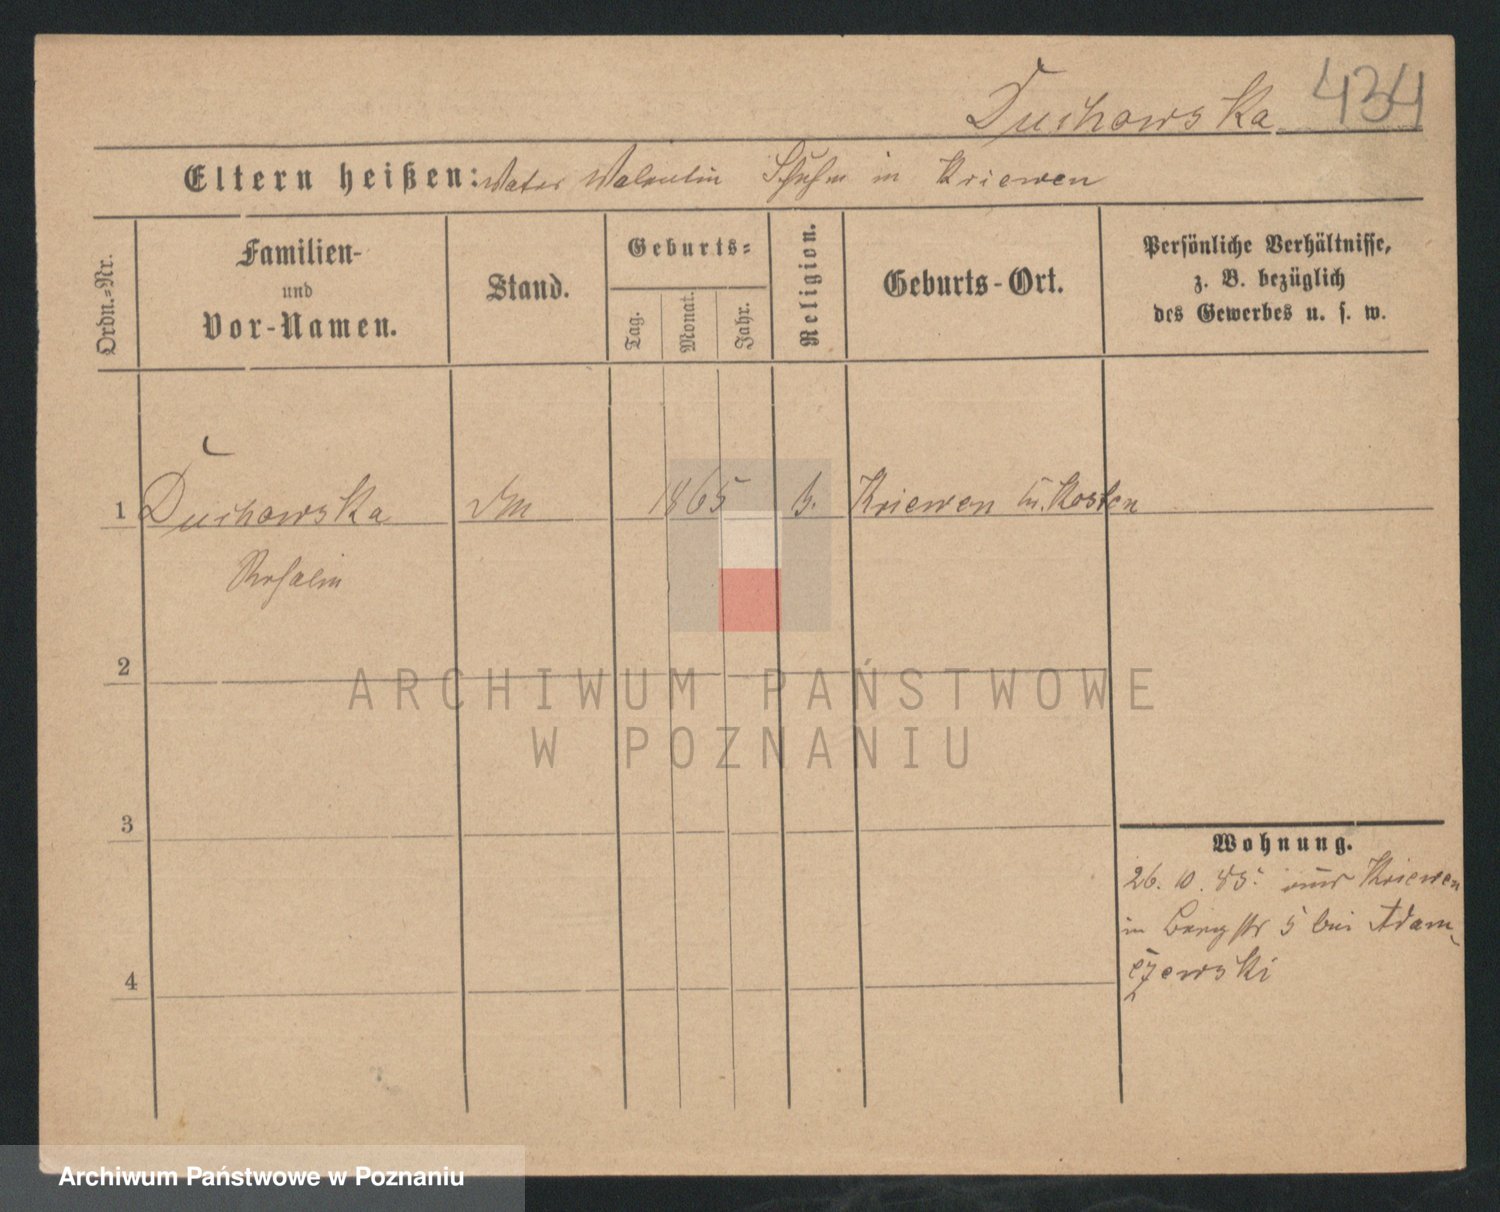 Duchowska 434
Eltern heißen: Vater Valentin Schuhm in Kriewen
Ordn.-Nr.
Familien-
und
Vor-Namen.
Stand.
Geburts-
Tag.
Monat.
Jahr.
Religion.
Geburts-Ort.
Persönliche Verhältnisse,
z. B. bezüglich
des Gewerbes u. s. w.
1 Duchowska 1865 Kriewen Kosten
Rosalie
2
ARCHIWUM PAŃSTWOWE
W POZNANIU
3
Wohnung.
26. 10. 85. aus Kriewen
in Bergstr 5 bei Adam-
czewski
4
Archiwum Państwowe w Poznaniu